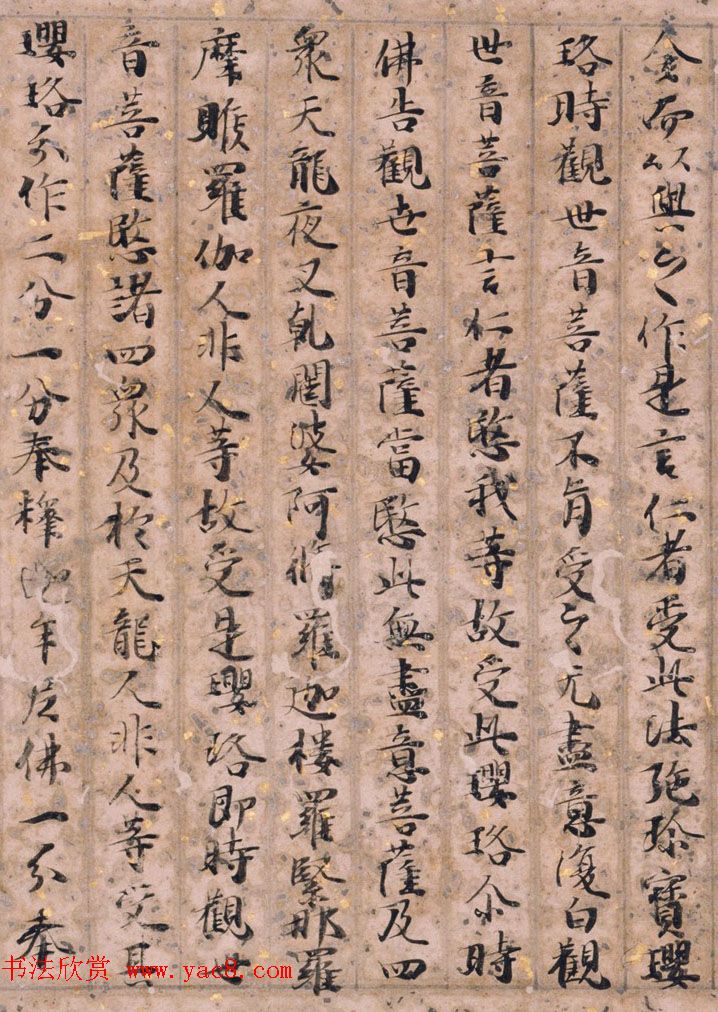 金而以與之作是言仁者受此法施珍寶瓔
珞時觀世音菩薩不肯受之无盡意復白觀
世音菩薩言仁者愍我等故受此瓔珞尒時
佛告觀世音菩薩當愍此無盡意菩薩及四
衆天龍夜叉乹闥婆阿脩羅迦樓羅緊那羅
摩睺羅伽人非人等故受是瓔珞即時觀世
音菩薩愍諸四衆及於天龍人非人等受其
瓔珞分作二分一分奉釋迦牟尼佛一分奉
书法欣赏 www.yac8.com